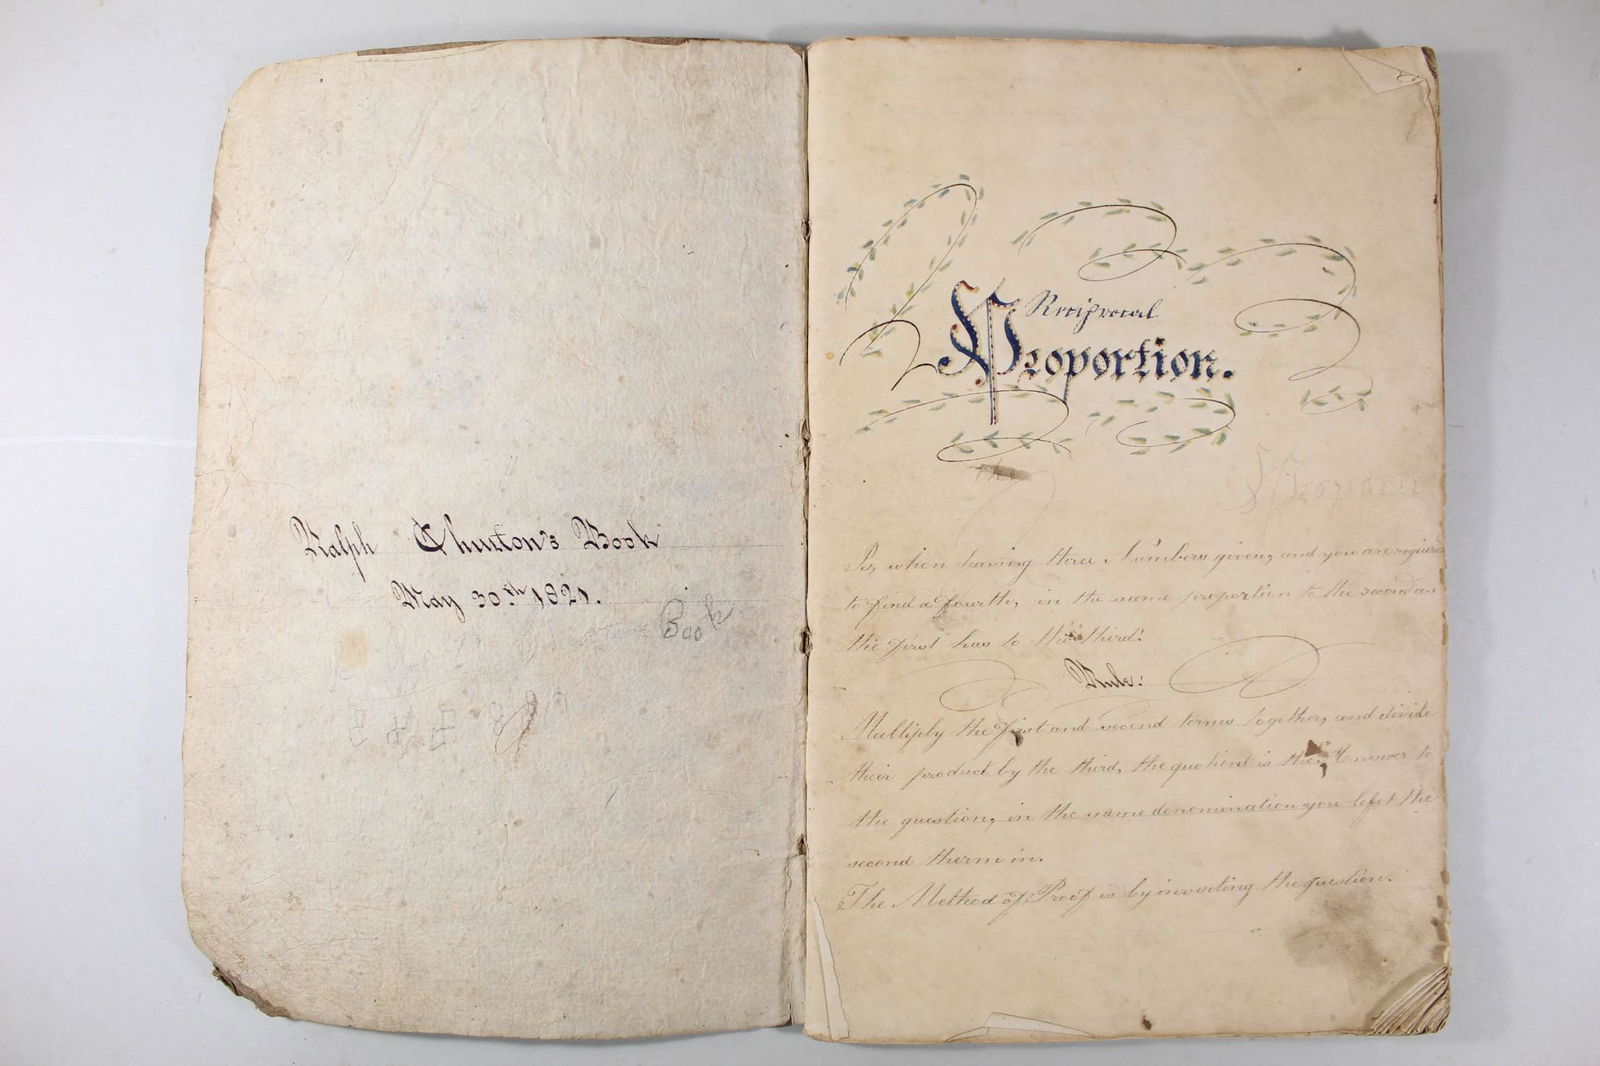 Ralph Churton's Book
May 30th 1821.
Book
Reciprocal
Proportion.
Is, when having three Numbers given, and you are required
to find a fourth, in the same proportion to the second as
the first has to the third:
Rule:
Multiply the first and second terms together, and divide
their product by the third, the quotient is the Answer to
the question, in the same denomination you left the
second therm in.
The Method of Proof is by inverting the question.